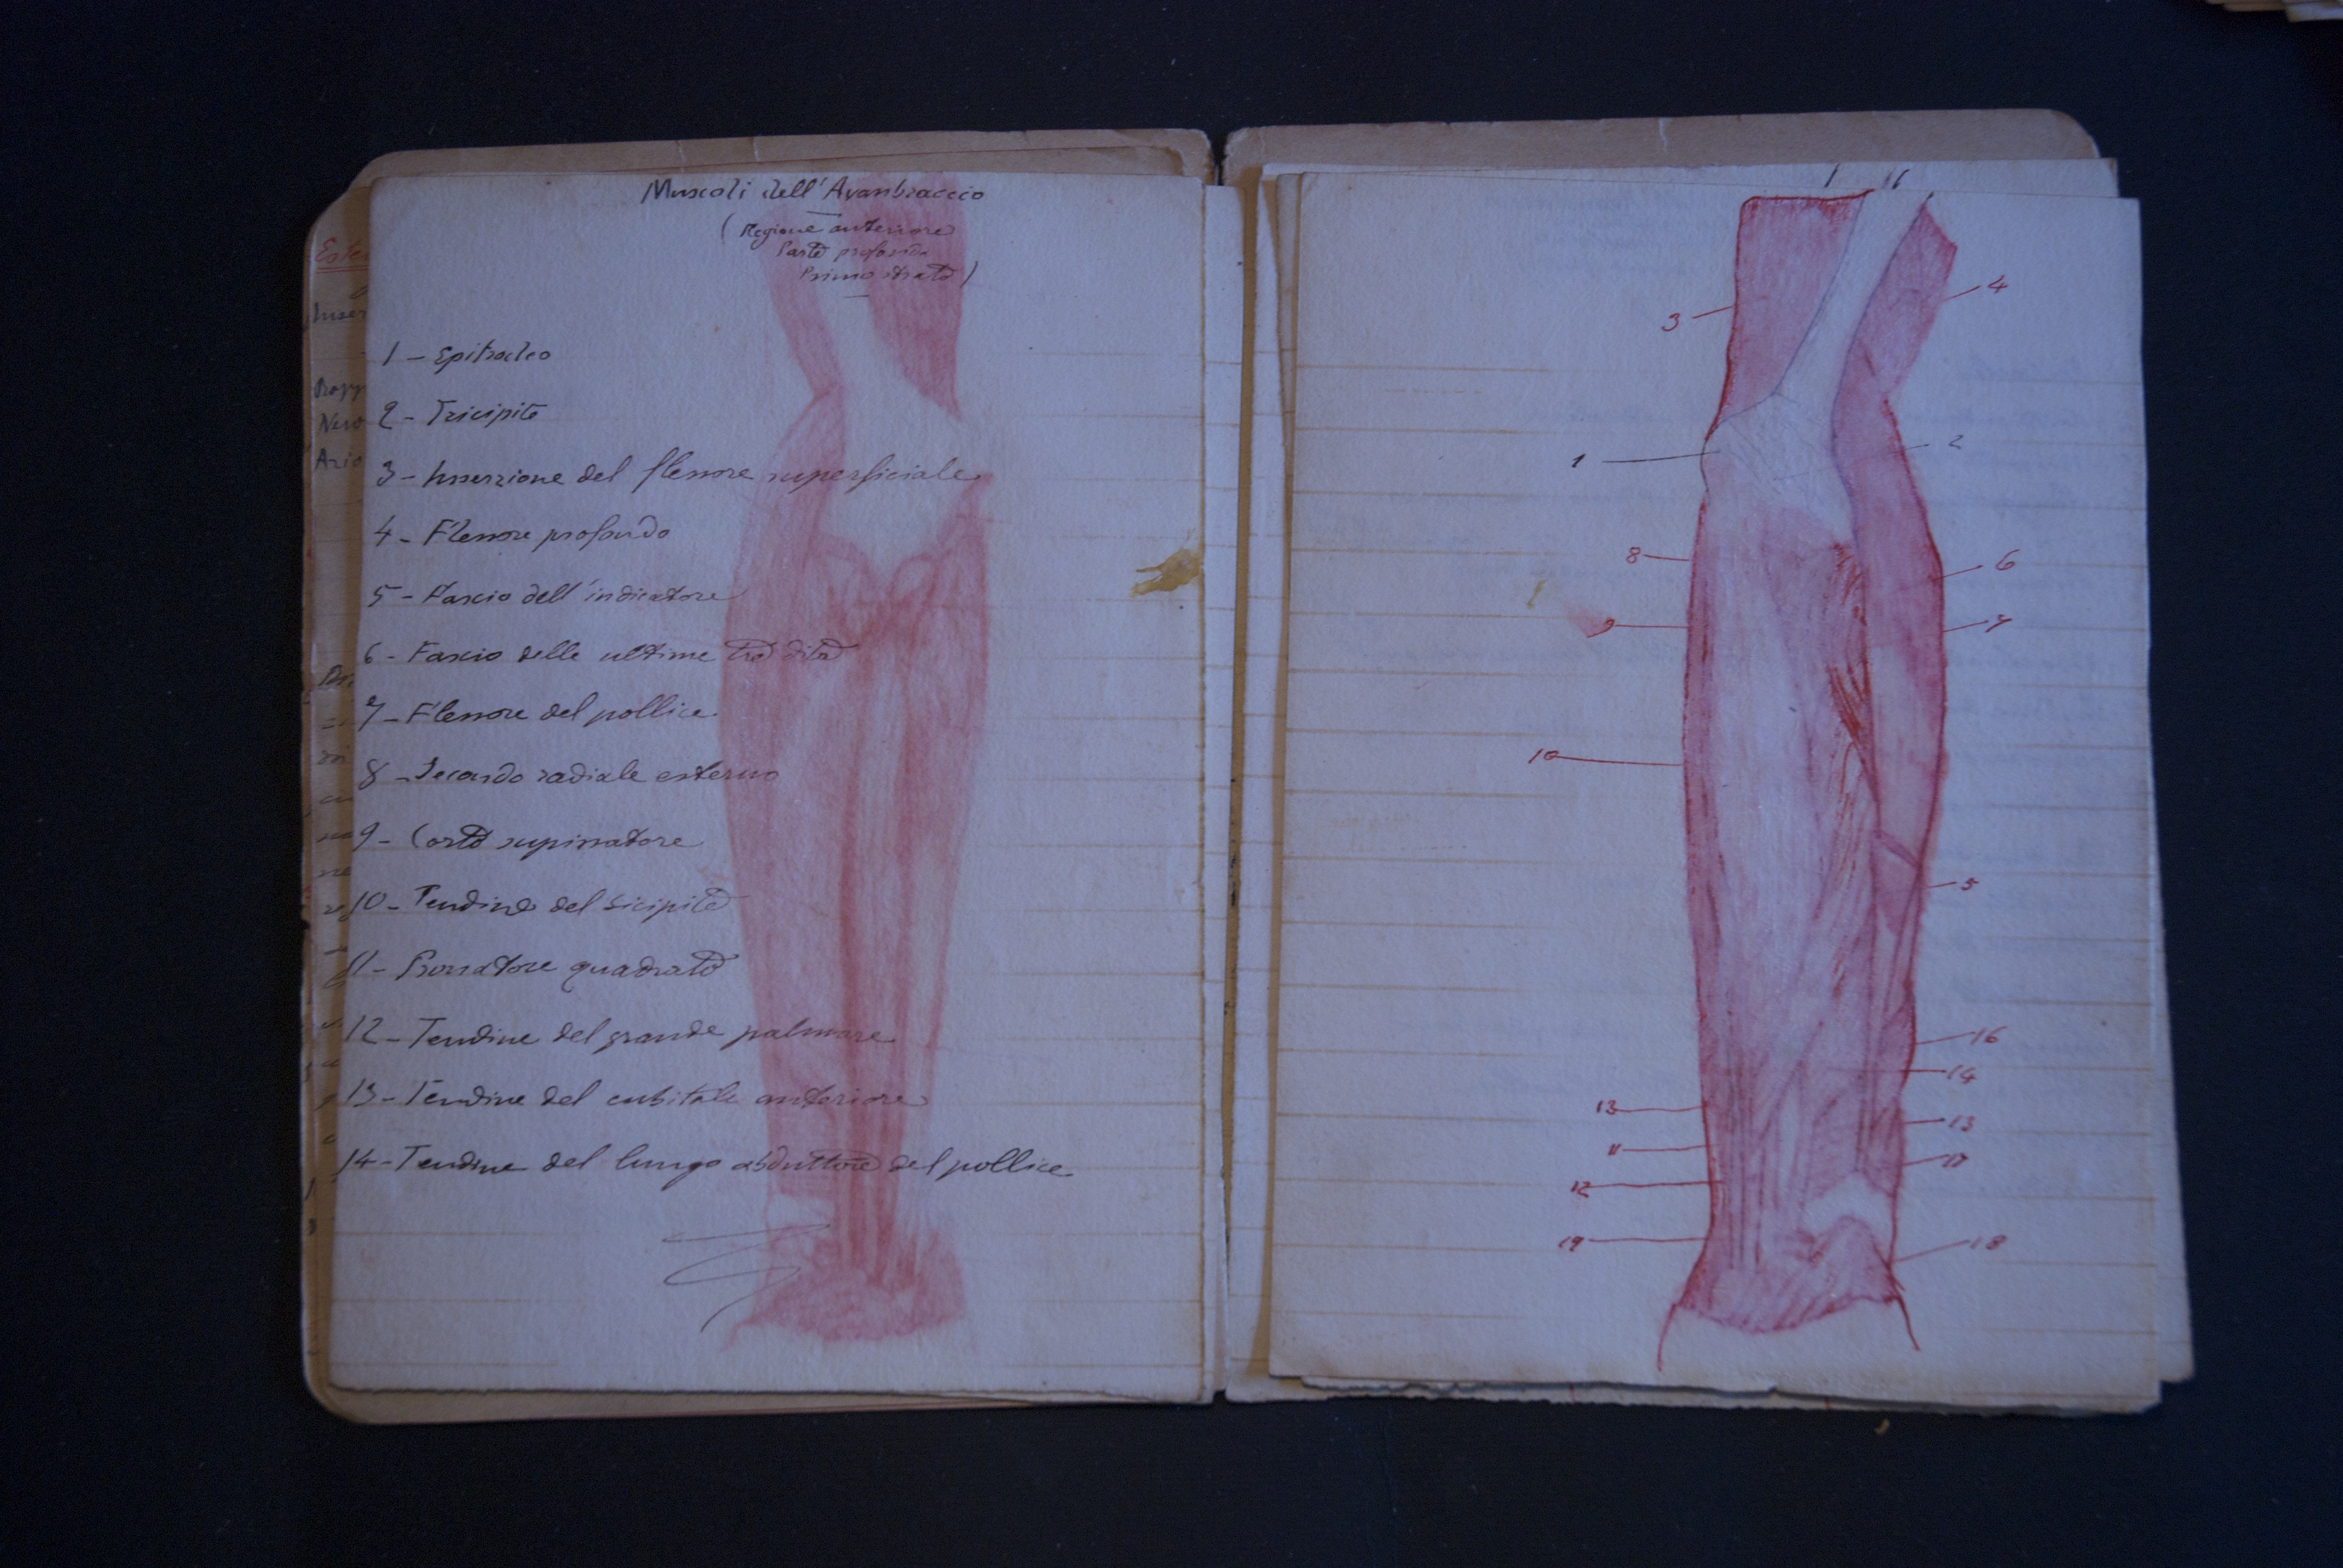 Muscoli dell'Avanbraccio
(Regione anteriore
Parte profonda
Primo strato)
1 - Epitroclea
2 - Tricipite
3 - Inserzione del flessore superficiale
4 - Flessore profondo
5 - Fascio dell'indicatore
6 - Fascio delle ultime tre dita
7 - Flessore del pollice
8 - Secondo radiale esterno
9 - Corto supinatore
10 - Tendine del bicipite
11 - Pronatore quadrato
12 - Tendine del grande palmare
13 - Tendine del cubitale anteriore
14 - Tendine del lungo abduttore del pollice
3
4
1
2
8
6
9
7
10
5
16
14
13
13
11
17
12
19
18